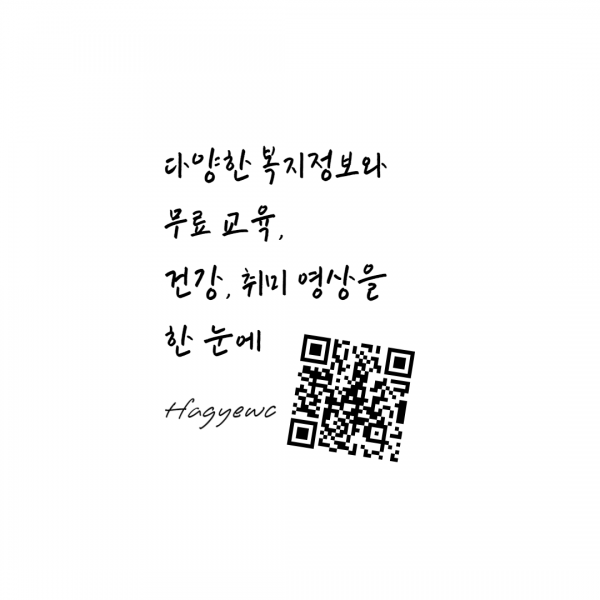 다양한 복지정보와
무료 교육,
건강, 취미 영상을
한 눈에
Hagyewc